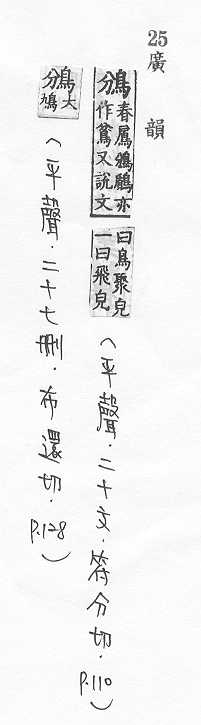 25 廣韻
鳻 春鳸鳻鶞亦
作 又說文
曰鳥聚皃
一曰飛皃
(平聲.二十文.符分切.P.110)
鳻 大
鳩
(平聲.二十七刪.布還切.P.128)